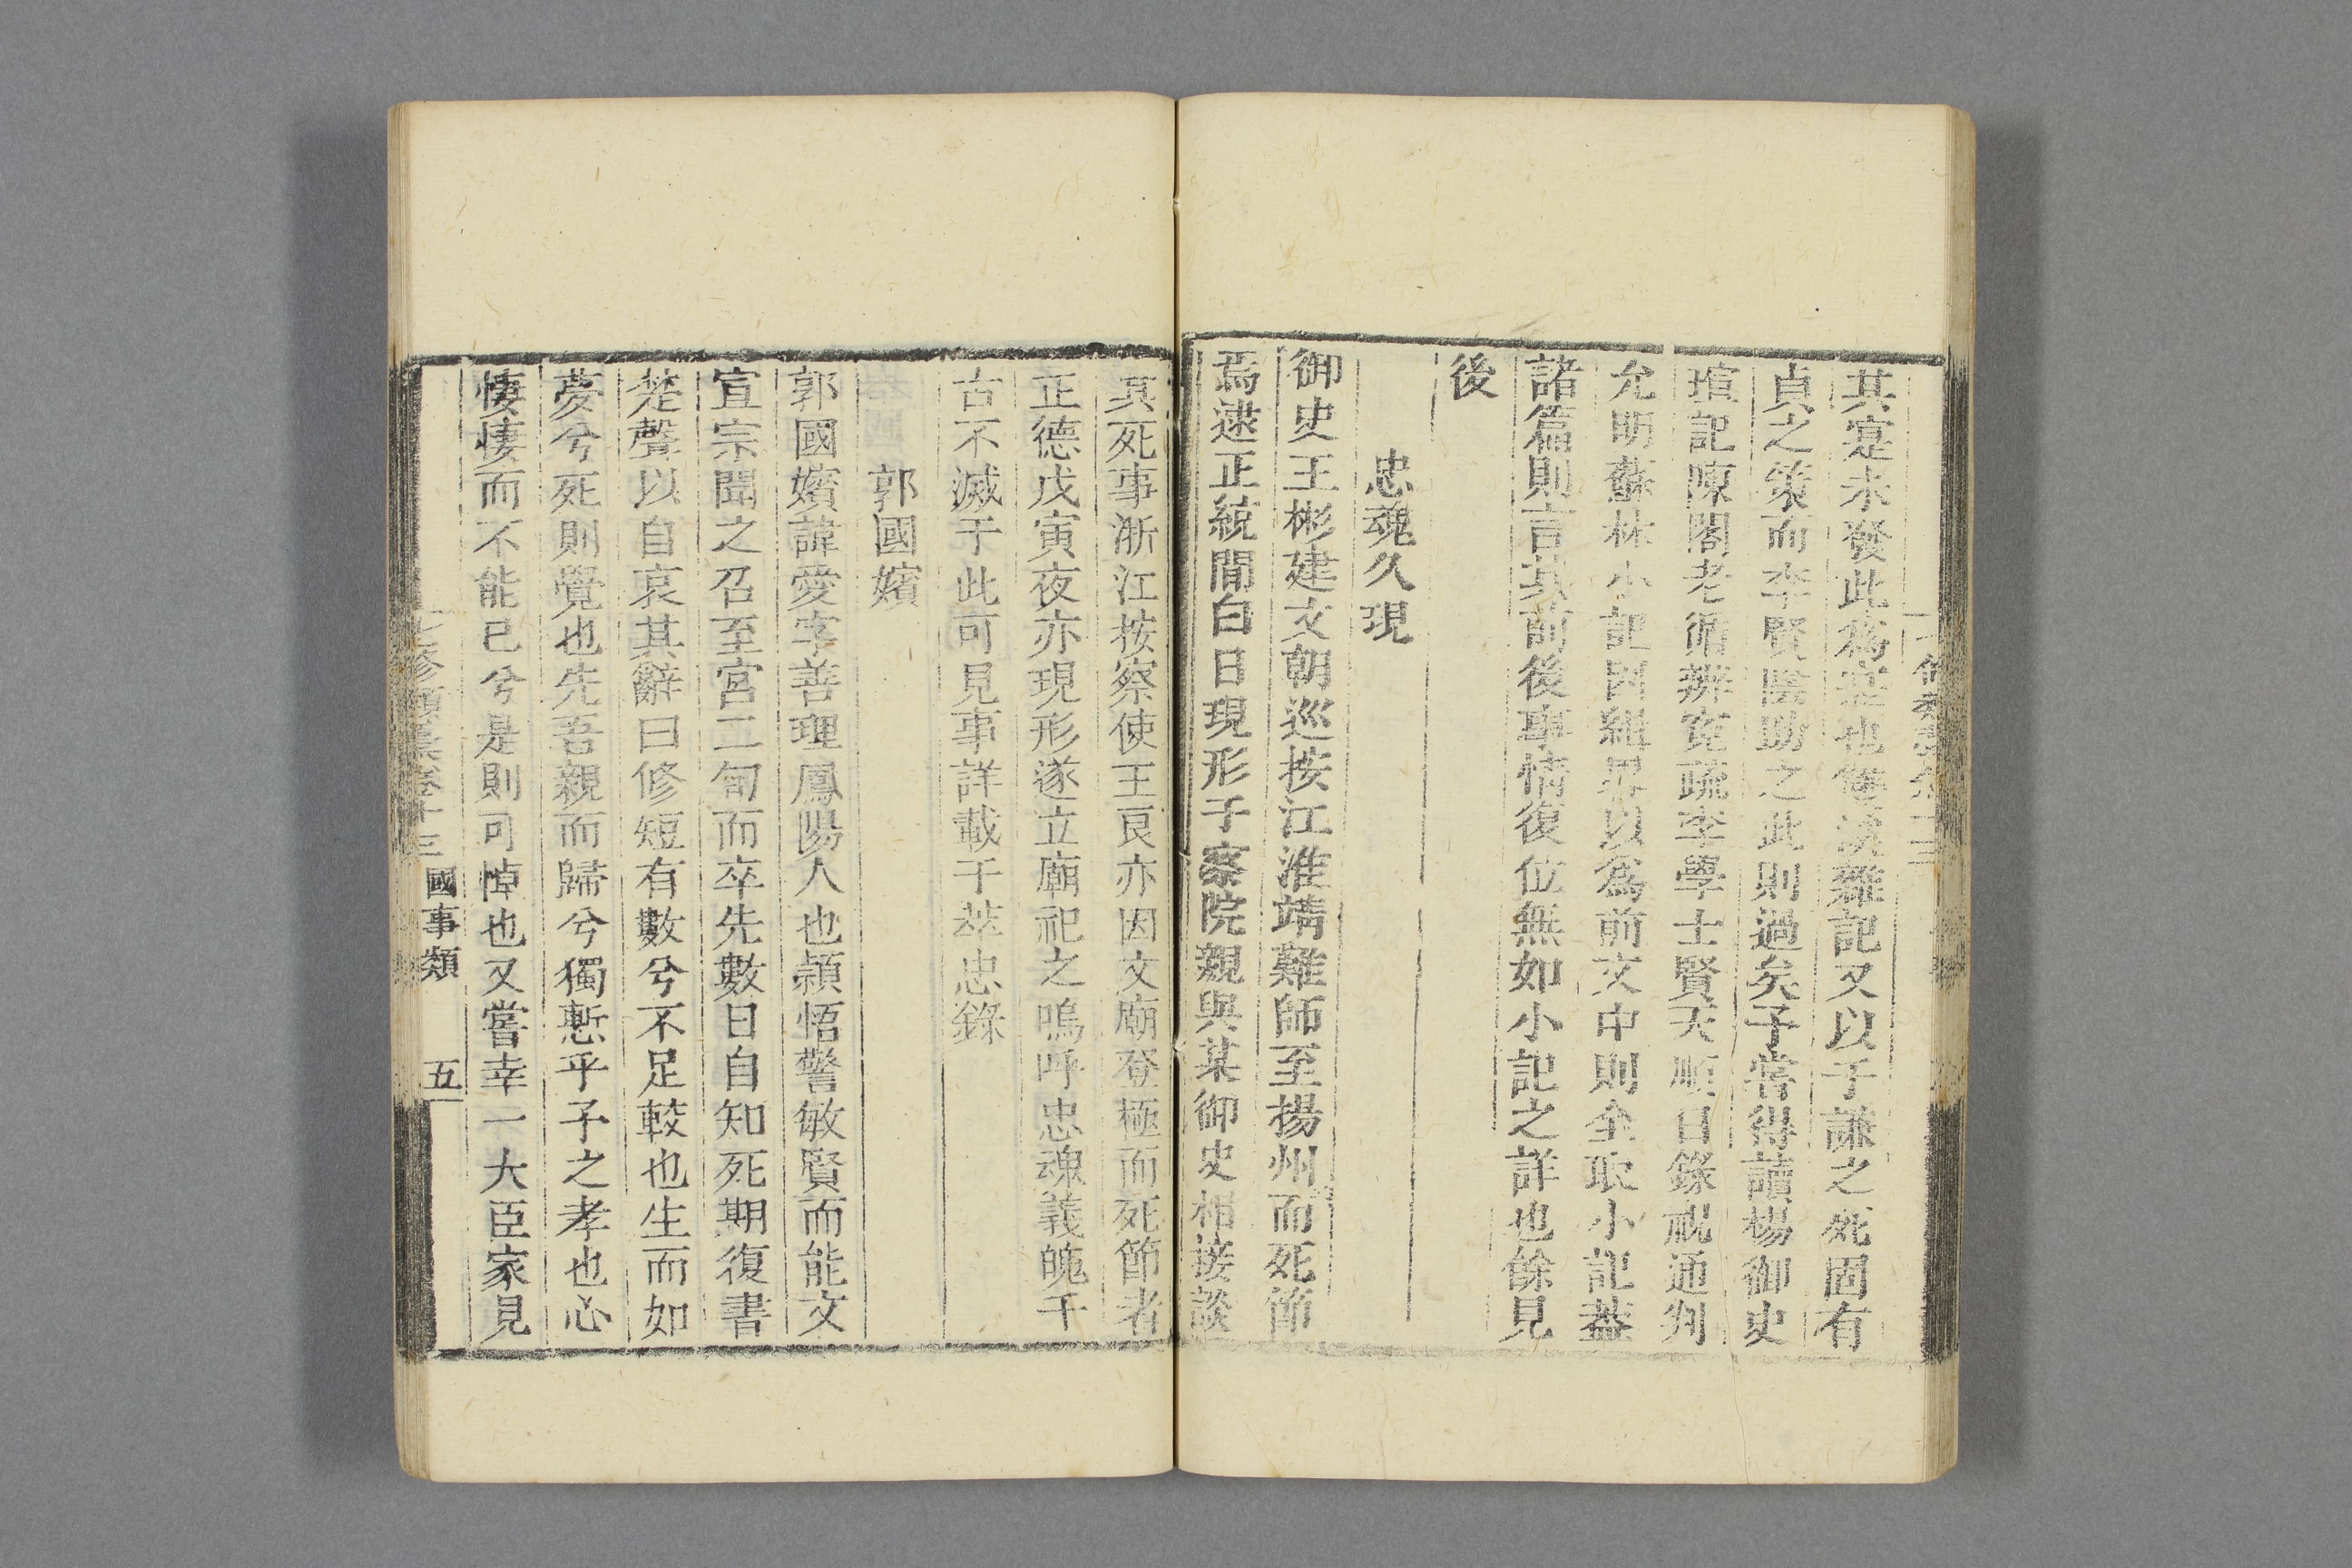 其寔未發此為寔也雙溪雜記又以于謙之死固有
貞之策而李賢陰助之此則過矣予嘗得讀楊御史
瑄記陳閣老循辨寃疏李學士賢天順日錄祝通判
允明蘇林小記因細尋以為前文中則全取小記葢
諸篇則言其前後事情復位無如小記之詳也餘見
後
忠魂久現
御史王彬建文朝巡按江淮靖難師至揚州而死節
焉逮正統間白日現形于察院親與某御史相接談
其死事浙江按察使王良亦因文廟登極而死節者
正德戊寅夜亦現形遂立廟祀之嗚呼忠魂義魄千
古不滅于此可見事詳載于萃忠錄
郭國嬪
郭國嬪諱愛字善理鳳陽人也頴悟警敏賢而能文
宣宗聞之召至宮二旬而卒先數日自知死期復書
楚聲以自哀其辭曰修短有數兮不足較也生而如
夢兮死則覺也先吾親而歸兮獨慙乎予之孝也心
悽悽而不能已兮是則可悼也又嘗幸一大臣家見
七修類藁卷十三 國事類 五